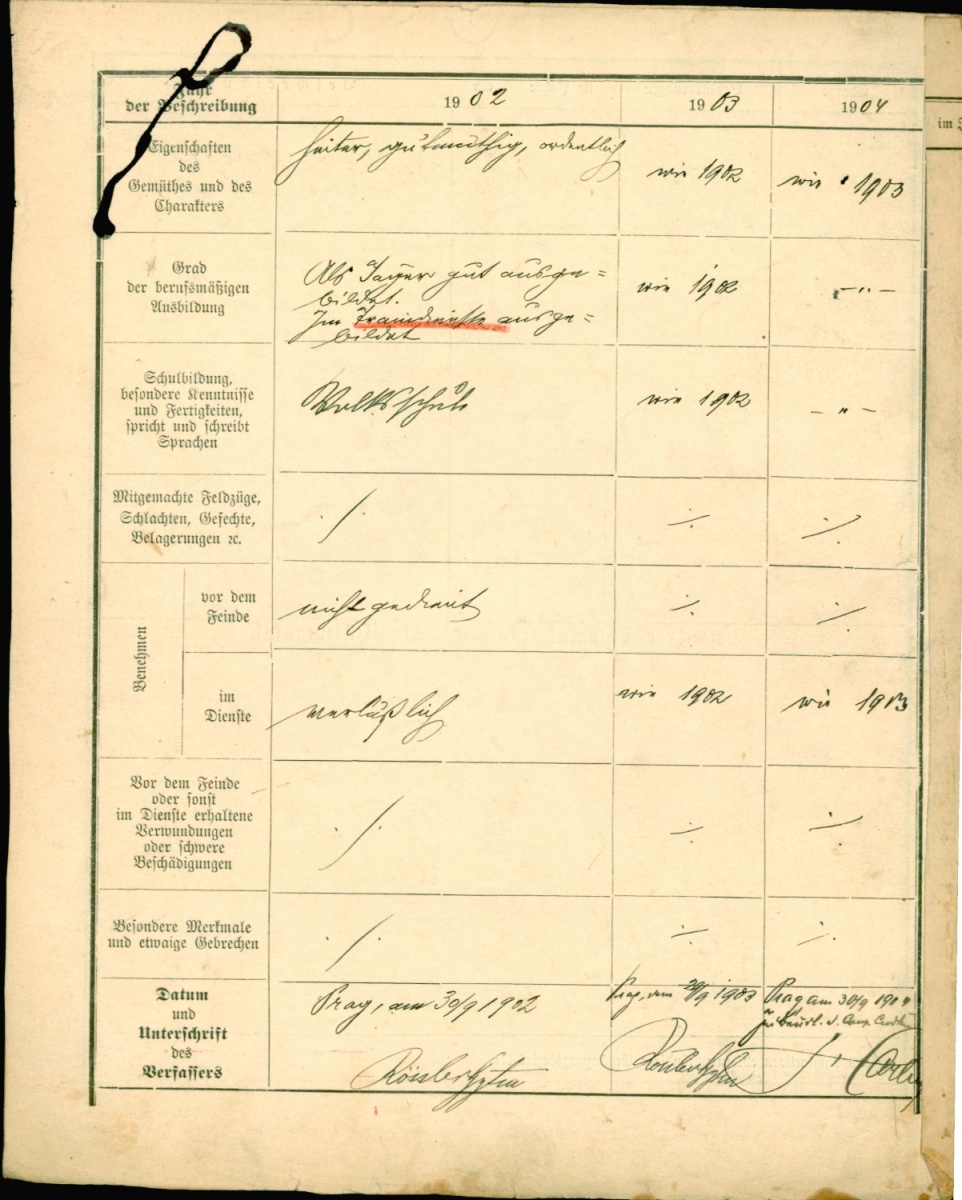 Jahr
der Beschreibung
1902
1903
1904
im
Eigenschaften
des
Gemüthes und des
Charakters
heiter, gutmüthig, ordentlich
wie 1902
wie 1903
Grad
der berufsmäßigen
Ausbildung
Als Jäger gut ausge=
bildet.
Im Traindienste ausge=
bildet
wie 1902
— " —
Schulbildung,
besondere Kenntnisse
und Fertigkeiten,
spricht und schreibt
Sprachen
Volksschule
wie 1902
— " —
Mitgemachte Feldzüge,
Schlachten, Gefechte,
Belagerungen ꝛc.
./.
./.
./.
Benehmen
vor dem
Feinde
nicht gedient
./.
./.
im
Dienste
verläßlich
wie 1902
wie 1903
Vor dem Feinde
oder sonst
im Dienste erhaltene
Verwundungen
oder schwere
Beschädigungen
./.
./.
./.
Besondere Merkmale
und etwaige Gebrechen
./.
./.
./.
Datum
und
Unterschrift
des
Verfassers
Prag, am 30/9 1902
Prag, am /9 1903
Prag am 30/9 1904